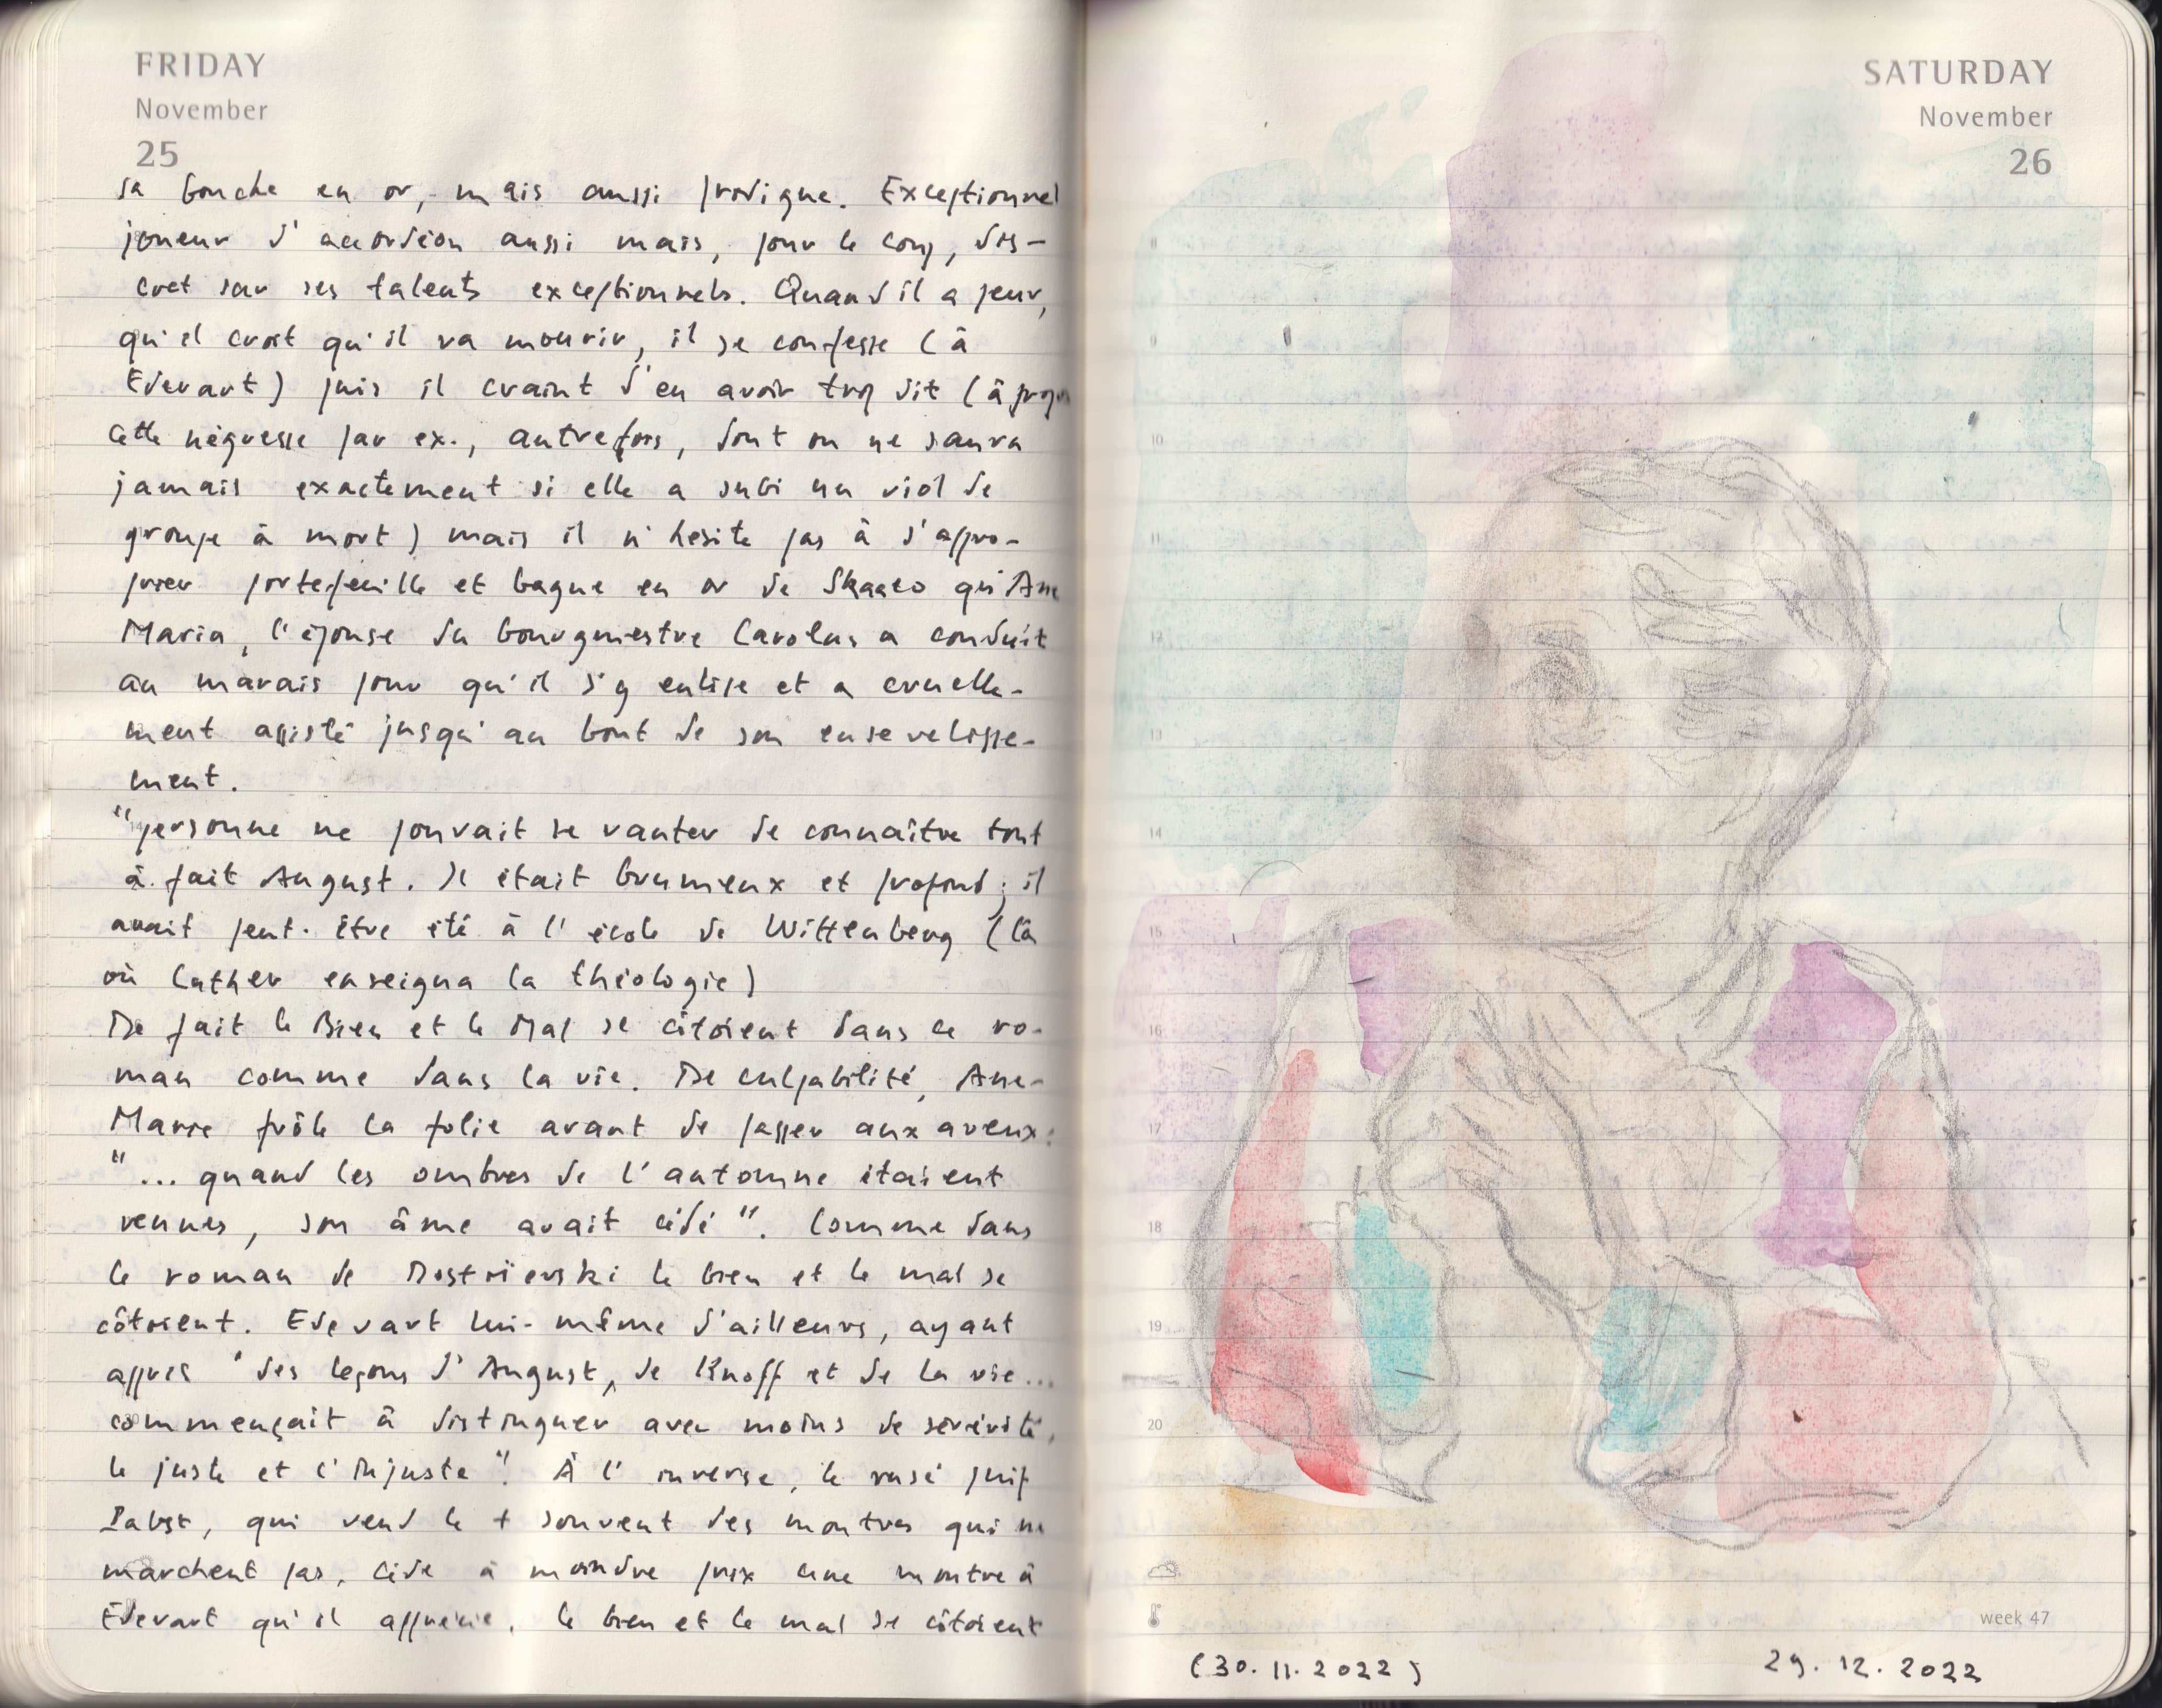 FRIDAY
November
25
sa bouche en or, mais aussi prodigue. Exceptionnel
joueur d'accordéon aussi mais, pour le coup, dis-
cret sur ses talents exceptionnels. Quand il a peur,
qu'il croit qu'il va mourir, il se confesse (à
Edevart) puis il craint d'en avoir trop dit (à propos
cette négresse par ex., autrefois, dont on ne saura
jamais exactement si elle a subi un viol de
groupe à mort) mais il n'hésite pas à s'appro-
prier portefeuille et bague en or de Skaaro qu'Ane
Maria, l'épouse du bourgmestre Carolus a conduit
au marais pour qu'il s'y enlise et a cruelle-
ment assisté jusqu'au bout de son ensevelisse-
ment.
"personne ne pouvait se vanter de connaître tout
à fait August. Il était brumeux et profond ; il
avait peut-être été à l'école de Wittenberg (là
où Luther enseigna la théologie)
De fait le Bien et le Mal se côtoient dans ce ro-
man comme dans la vie. De culpabilité, Ane-
Marie frôle la folie avant de passer aux aveux :
"... quand les ombres de l'automne étaient
venues, son âme avait cédé". Comme dans
le roman de Dostoïevski le bien et le mal se
côtoient. Edevart lui-même d'ailleurs, ayant
appris "des leçons d'August, de Knoff et de la vie...
commençait à distinguer avec moins de sévérité,
le juste et l'injuste". À l'inverse, le rusé juif
Papst, qui vend le + souvent des montres qui ne
marchent pas, cède à moindre prix une montre à
Edevart qu'il apprécie. le bien et le mal se côtoient
SATURDAY
November
26
8
9
10
11
12
13
14
15
16
17
18
19
20
week 47
(30.11.2022) 29.12.2022